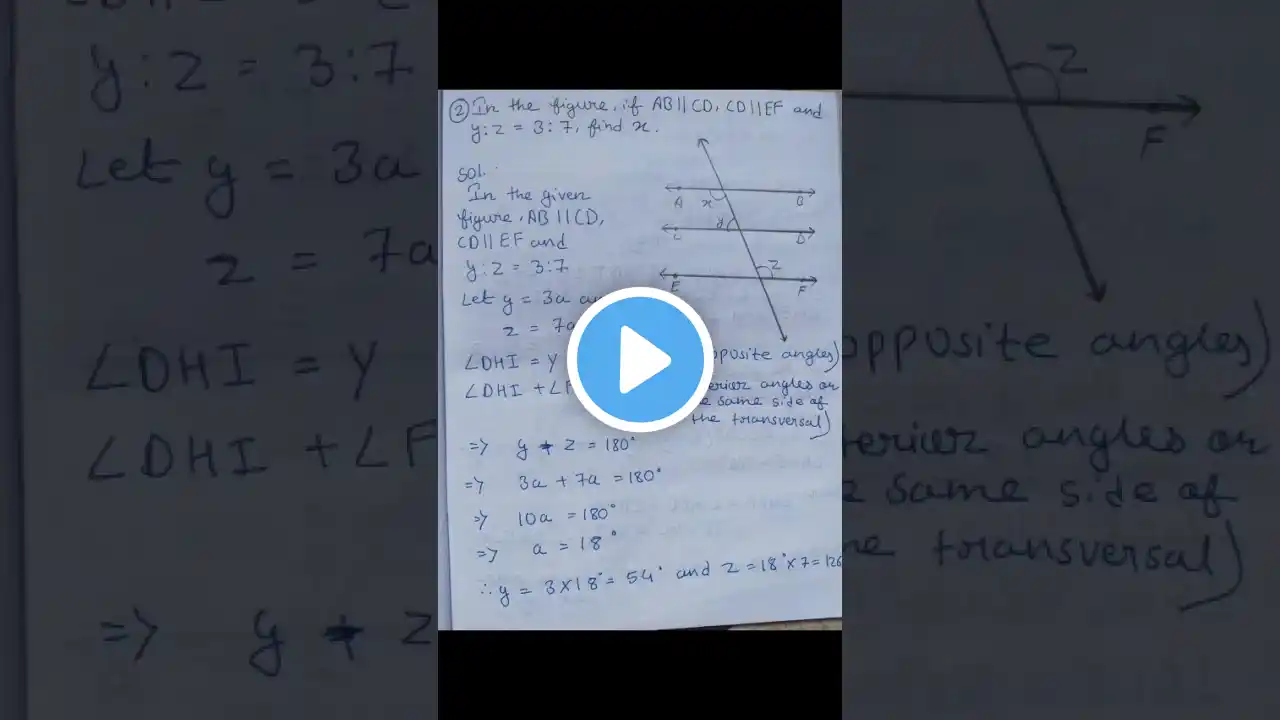 ② In the figure, if AB||CD, CD||EF and
y:z = 3:7, find x.
Sol.
In the given
figure, AB||CD,
CD||EF and
y:z = 3:7
Let y = 3a
z = 7a
∠DHI = y opposite angles)
∠DHI + ∠F angles or
same side of
the transversal)
=> y + z = 180°
=> 3a + 7a = 180°
=> 10a = 180°
=> a = 18°
∴ y = 3×18° = 54° and z = 18°×7 = 126
A
B
x
y
C
D
z
E
F
y:z = 3:7
Let y = 3a
z = 7a
∠DHI = y
∠DHI + ∠F
=> y + z
z
F
opposite angles)
angles or
same side of
transversal)